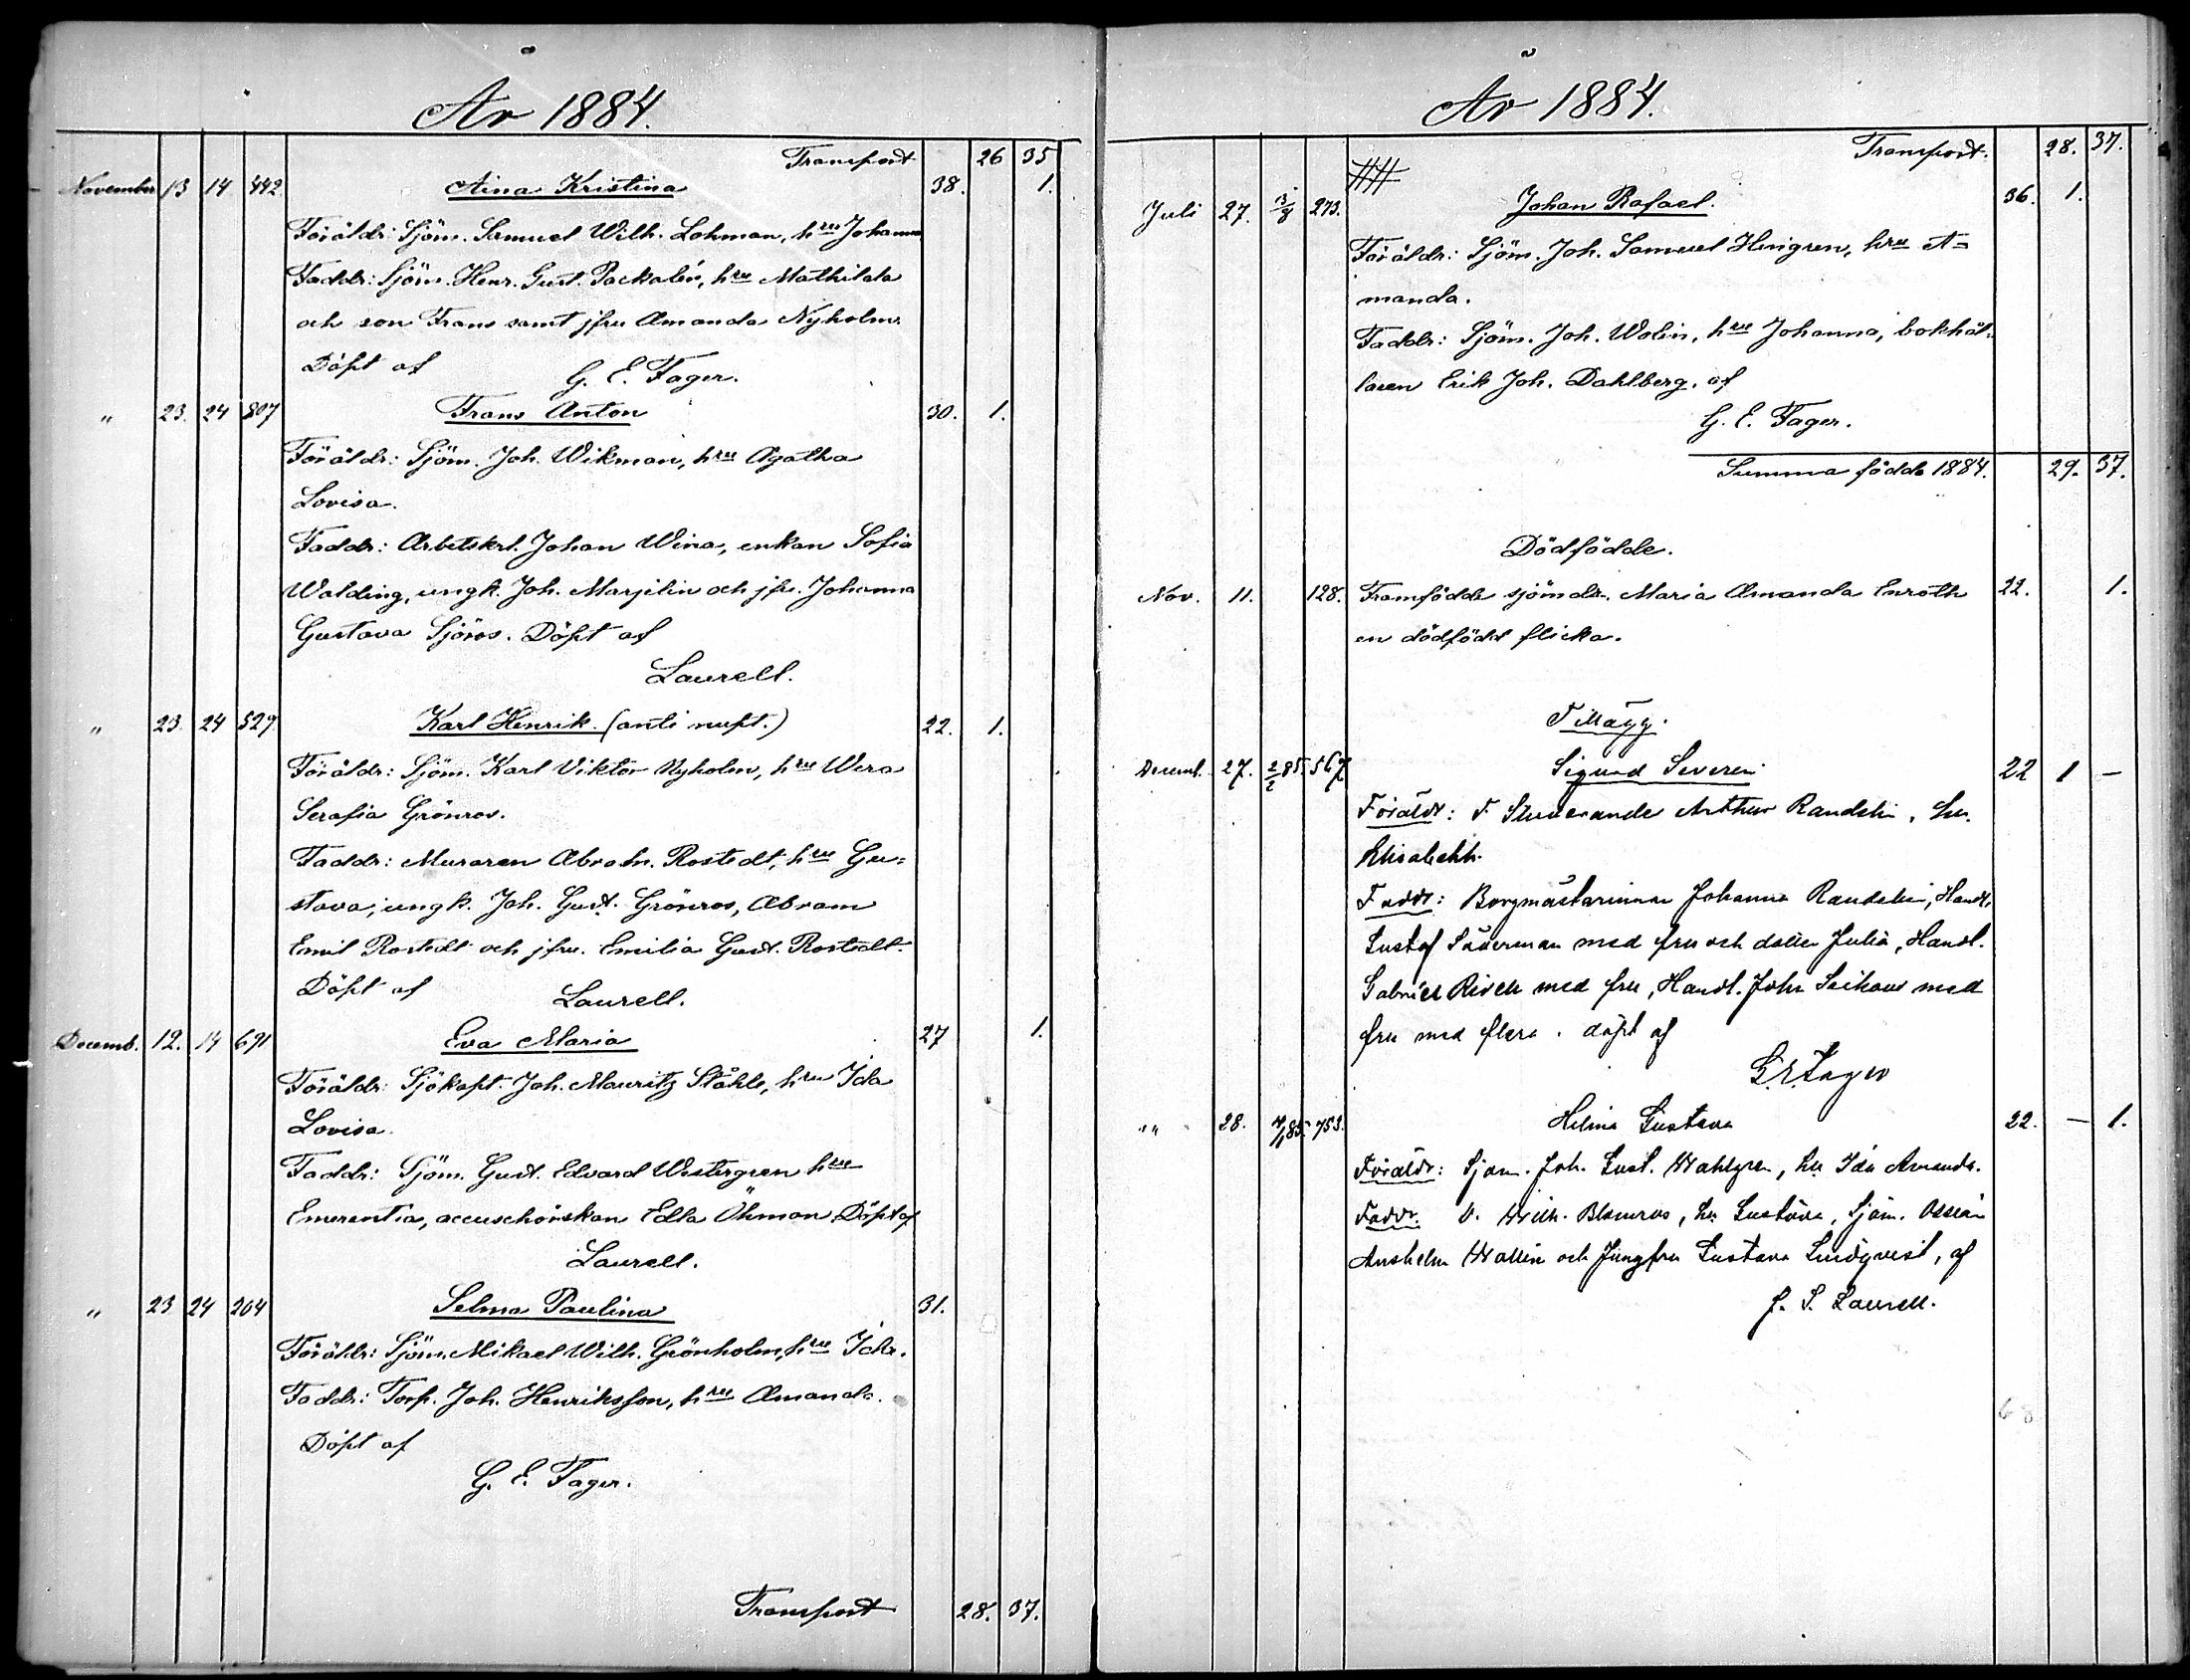 År 1884.
Transport 26 35
November 13 14 442 Aina Kristina 38. 1.
Föräldr: Sjöm. Samuel Wilh. Lohman, hru Johanna
Faddr: Sjöm. Henr. Gust. Packalén, hru Mathilda
och son Frans samt jfru Amanda Nyholm.
Döpt af G. E. Fager.
" 23. 24 807 Frans Anton 30. 1.
Föräldr: Sjöm. Joh. Wikman, hru Agatha
Lovisa.
Faddr: Arbetskrl. Johan Wina, enkan Sofia
Walding, ungk. Joh. Marjelin och jfr. Johanna
Gustava Sjöros. Döpt af
Laurell.
" 23. 24 529 Karl Henrik. (anti nupt.) 22. 1.
Föräldr: Sjöm. Karl Viktor Nyholm, hru Wera
Serafia Grönros.
Faddr: Muraren Abrah. Rostedt, hru Gu=
stava, ungk. Joh. Gust. Grönros, Abram
Emil Rostedt och jfru. Emilia Gust. Rostedt.
Döpt af Laurell.
Decemb. 12. 14 691 Eva Maria 27 1.
Föräldr: Sjökapt. Joh. Mauritz Ståhle, hru Ida
Lovisa.
Faddr: Sjöm. Gust. Edvard Westergren hru
Emerentia, accuschörskan Edla Öhman. Döpt af
Laurell.
" 23 24 204 Selma Paulina 31.
Föräldr: Sjöm. Mikael Wilh. Grönholm, hru Ida.
Faddr: Torp. Joh. Henriksson, hru Amanda.
Döpt af
G. E. Fager.
Transport 28. 37.
År 1884.
Transport. 28. 37.
Juli 27. 3/8 273. Johan Rafael. 36. 1.
Föräldr: Sjöm. Joh. Samuel Hengren, hru A=
manda.
Faddr: Sjöm. Joh. Wolin, hru Johanna, bokhål=
laren Erik Joh. Dahlberg. af
G. E. Fager.
Summa födda 1884. 29. 37.
Dödfödde.
Nov. 11. 128. Framfödde sjömdr. Maria Amanda Enroth 22. 1.
en dödfödd flicka.
Tillägg.
Decemb. 27. 2/2 85. 567 Sigurd Severin 22 1 —
Föräldr: F. Studerande Arthur Randelin, hu.
Elisabeth.
Faddr: Borgmästarinnan Johanna Randelin, Handl.
Gustaf Söderman med fru och dotter Julia, Handl.
Gabriel med fru, Handl. John med
fru med flera. döpt af
G. E. Fager
"" 28. 4/1 85. 753. Helmi Gustava 22. — 1.
Föräldr: Sjöm. Joh. Gust. Wahlgren, hu Ida Amanda.
Faddr. Wilh. Blomros, hu Gustava, Sjöm. Ossian
Anshelm Wallin och Jungfru Gustava Lindqvist, af
J. S. Laurell.
68